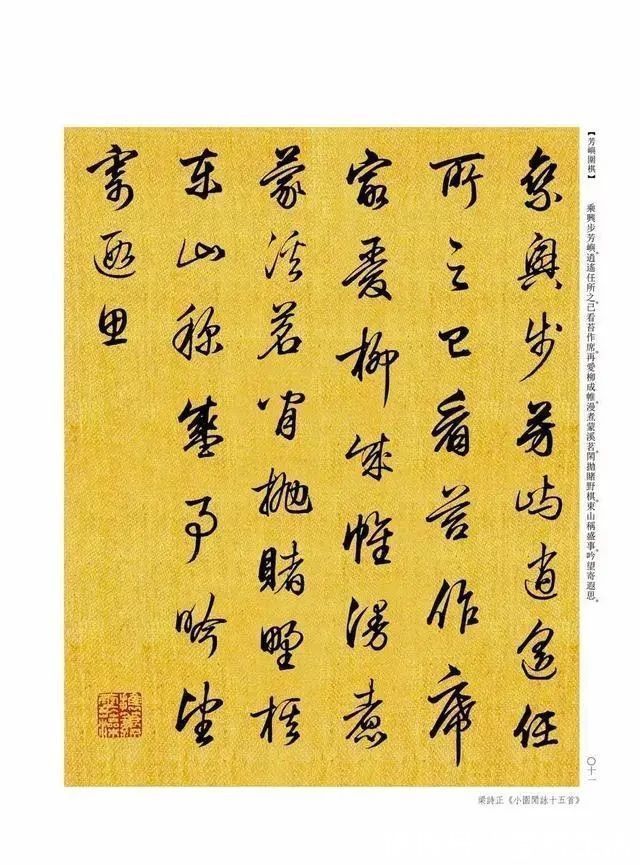 【芳嶼圍棋】
乘興步芳嶼。逍遙任所之。己看苔作席。再愛柳成帷。漫煮蒙溪茗。閑拋賭野棋。東山稱盛事。吟望寄遐思。
乘興步芳嶼逍遙任
所之已看苔作席
最愛柳成帷漫煮
蒙溪茗閒拋賭野棋
東山稱盛事吟望
寄遐思
〇十一
梁詩正《小園閒詠十五首》